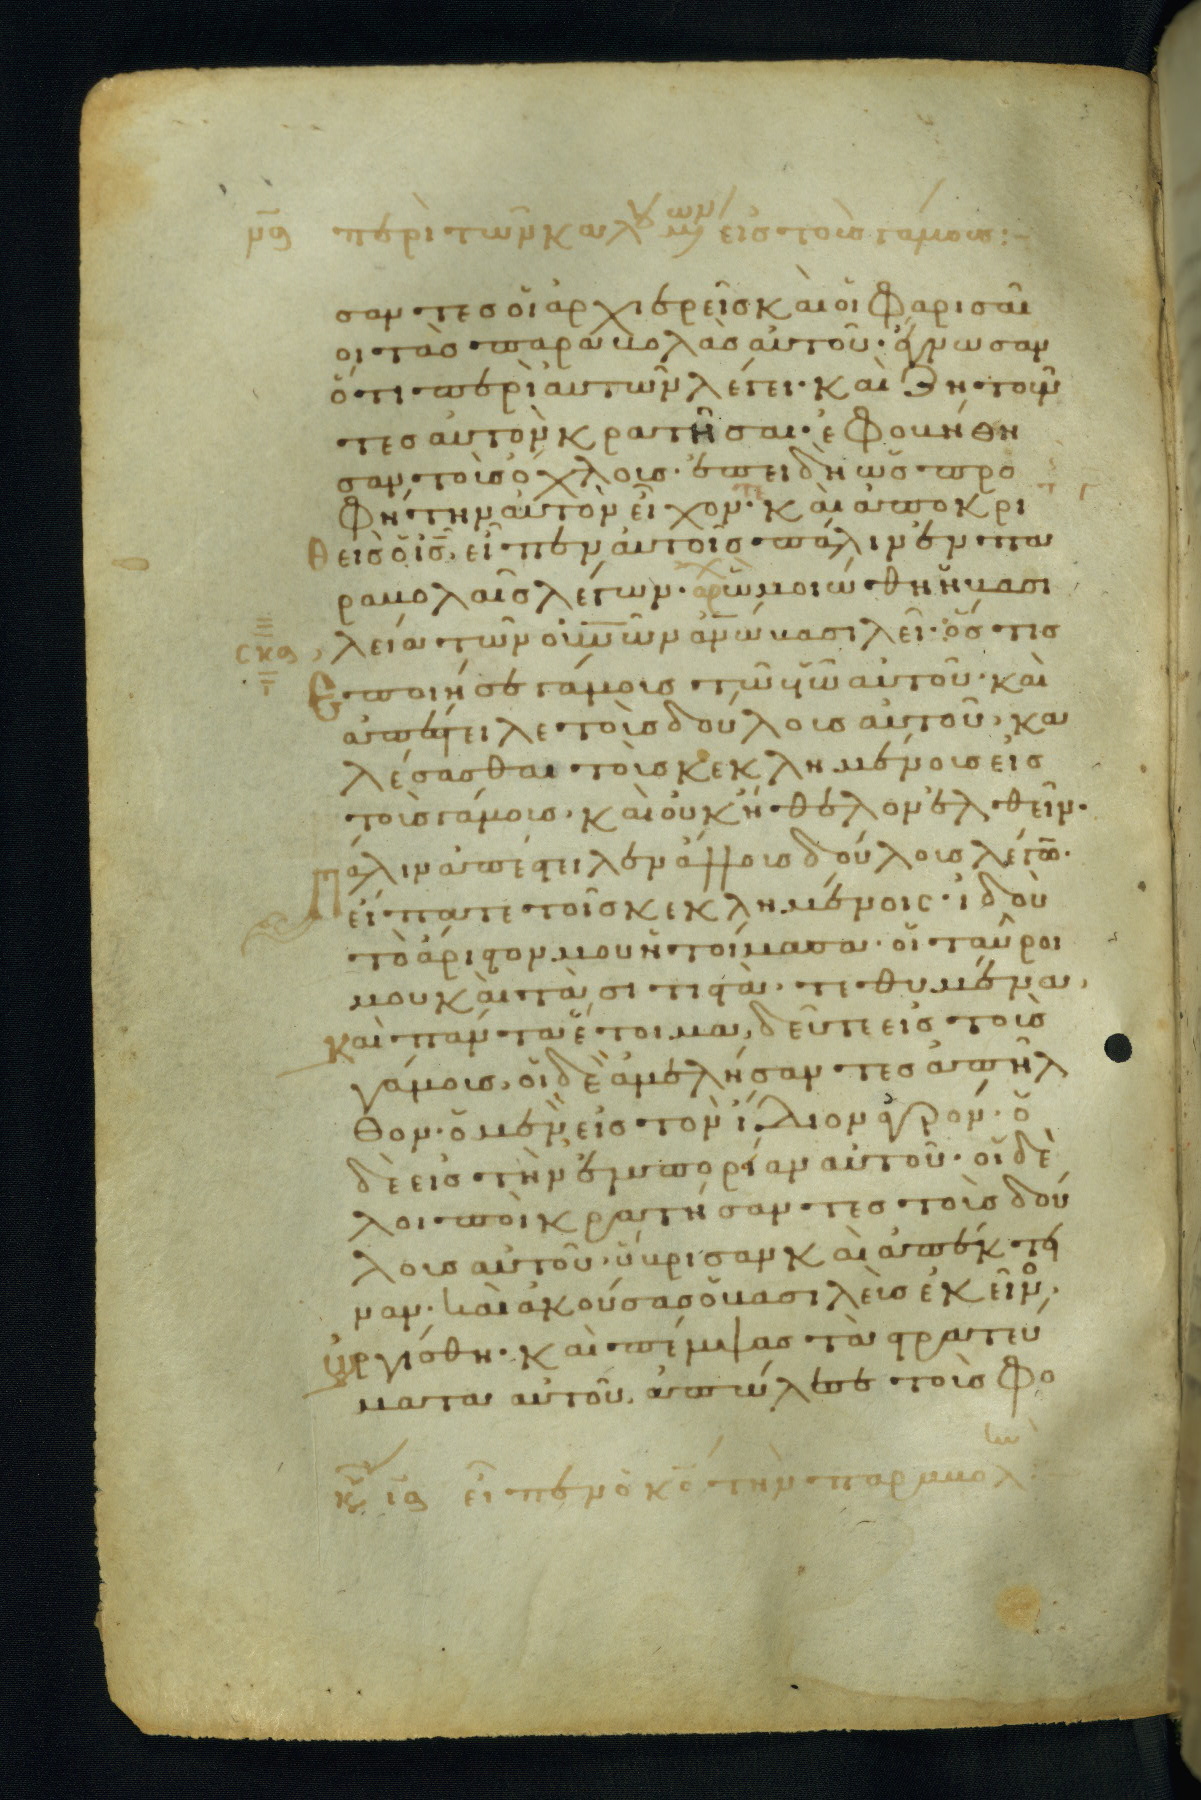 μα περὶ τῶν καλουμένων εἰς τοὺς γάμους:-
σαντες οἱ ἀρχιερεῖς καὶ οἱ Φαρισαῖ
οι τὰς παραβολὰς αὐτοῦ· ἔγνωσαν
ὅτι περὶ αὐτῶν λέγει· καὶ ζητοῦν
τες αὐτὸν κρατῆσαι· ἐφοβήθη
σαν τοὺς ὄχλους· ἐπειδὴ ὡς προ
φήτην αὐτὸν εἶχον· καὶ ἀποκρι
θεὶς ὁ ις, εἶπεν αὐτοῖς πάλιν ἐν πα
ραβολαῖς λέγων· ὡμοιώθη ἡ βασι
λεία τῶν οὐνῶν ἀνω βασιλεῖ· ὅστις
σκα
ἐποίησε γάμους τῷ υἱῷ αὐτοῦ· καὶ
ἀπέστειλε τοὺς δούλους αὐτοῦ, κα
λέσασθαι τοὺς κεκλημένους εἰς
τοὺς γάμους, καὶ οὐκ ἤθελον ἐλθεῖν·
Πάλιν ἀπέστειλεν ἄλλους δούλους λέγων·
εἴπατε τοῖς κεκλημένοις· ἰδοὺ
τὸ ἄριστόν μου ἡτοίμασα· οἱ ταῦροι
μου καὶ τὰ σιτιστὰ, τεθυμένα,
καὶ πάντα ἕτοιμα, δεῦτε εἰς τοὺς
γάμους, οἱ δὲ ἀμελήσαντες ἀπῆλ
θον· ὁ μὲν εἰς τὸν ἴδιον ἀγρόν· ὁ
δὲ εἰς τὴν ἐμπορίαν αὐτοῦ· οἱ δὲ
λοιποὶ κρατήσαντες τοὺς δού
λους αὐτοῦ· ὕβρισαν καὶ ἀπέκτει
ναν· καὶ ἀκούσας ὁ βασιλεὺς ἐκεῖνος,
ὠργίσθη· καὶ πέμψας τὰ στρατεύ
ματα αὐτοῦ, ἀπώλεσε τοὺς φο
κυ ια εἶπεν ὁ κς τὴν παραβολὴν